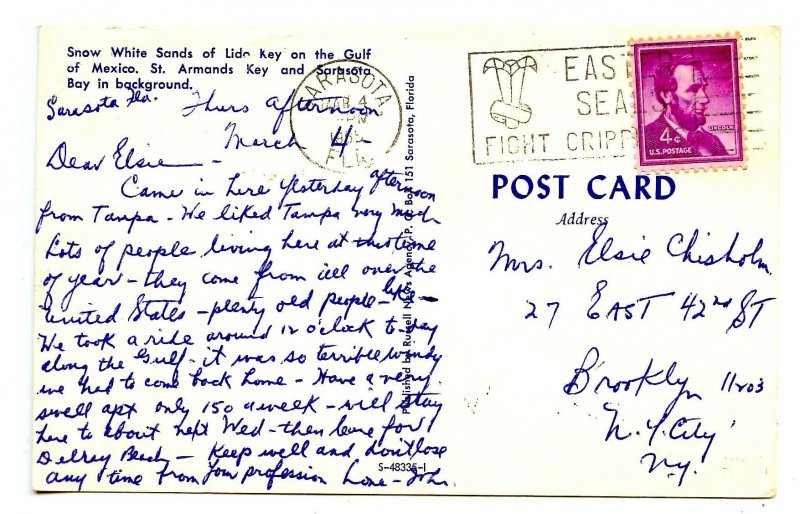 Snow White Sands of Lido Key on the Gulf
of Mexico. St. Armands Key and Sarasota
Bay in background.
Sarasota Fla. Thurs afternoon
March 4 -
Dear Elsie -
Came in here yesterday afternoon
from Tampa - We liked Tampa very much
Lots of people living here at this time
of year - they come from all over the
United States - plenty old people -
We took a ride around 12 o'clock to-day
along the Gulf - it was so terrible windy
we had to come back home - Have a very
swell apt only 150 a week - will stay
here to about next Wed - then leave for
Delray Beach - Keep well and don't lose
any time from your profession Love - John.
Published by Russell News Agency, P. O. Box 151 Sarasota, Florida
S-48335-1
SARASOTA
MAR 4
PM
FLA
EAST
SEA
FIGHT CRIPP
4¢
LINCOLN
U.S. POSTAGE
POST CARD
Address
Mrs. Elsie Chisholm
27 EAST 42nd ST
Brooklyn 11203
N.Y. City
N.Y.